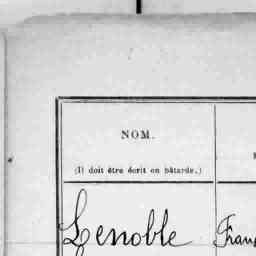 NOM.
(Il doit être écrit en bâtarde.)
Lenoble